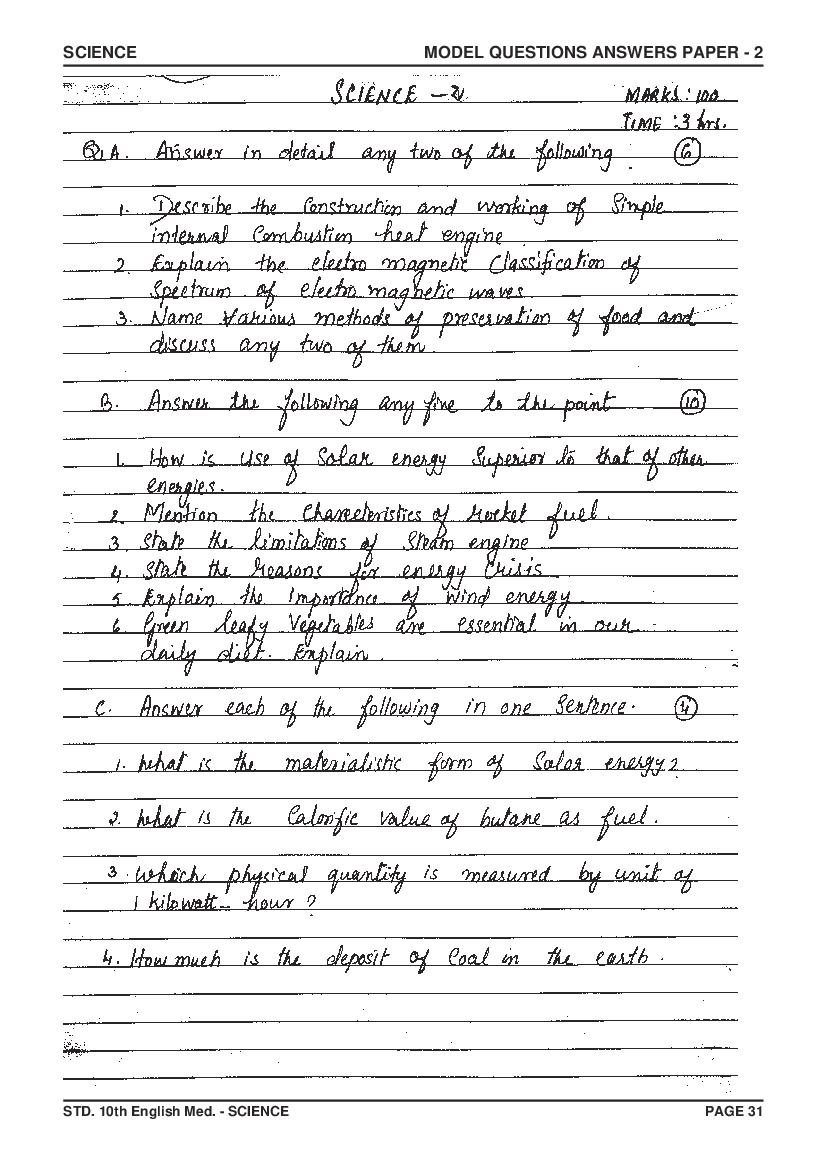 SCIENCE MODEL QUESTIONS ANSWERS PAPER - 2
SCIENCE - 2 MARKS: 100
TIME: 3 hrs.
Q.1 A. Answer in detail any two of the following (6)
1. Describe the Construction and working of Simple
internal Combustion heat engine
2. Explain the electro magnetic Classification of
Spectrum of electro magnetic waves
3. Name various methods of preservation of food and
discuss any two of them.
B. Answer the following any five to the point (10)
1. How is use of Solar energy Superior to that of other
energies.
2. Mention the Characteristics of rocket fuel.
3. State the limitations of Steam engine
4. State the reasons for energy Crisis
5. Explain the Importance of wind energy
6. Green leafy Vegetables are essential in our
daily diet. Explain.
C. Answer each of the following in one Sentence. (4)
1. What is the materialistic form of Solar energy?
2. What is the Calorific value of butane as fuel.
3. Which physical quantity is measured by unit of
1 kilowatt - hour?
4. How much is the deposit of Coal in the earth.
STD. 10th English Med. - SCIENCE PAGE 31